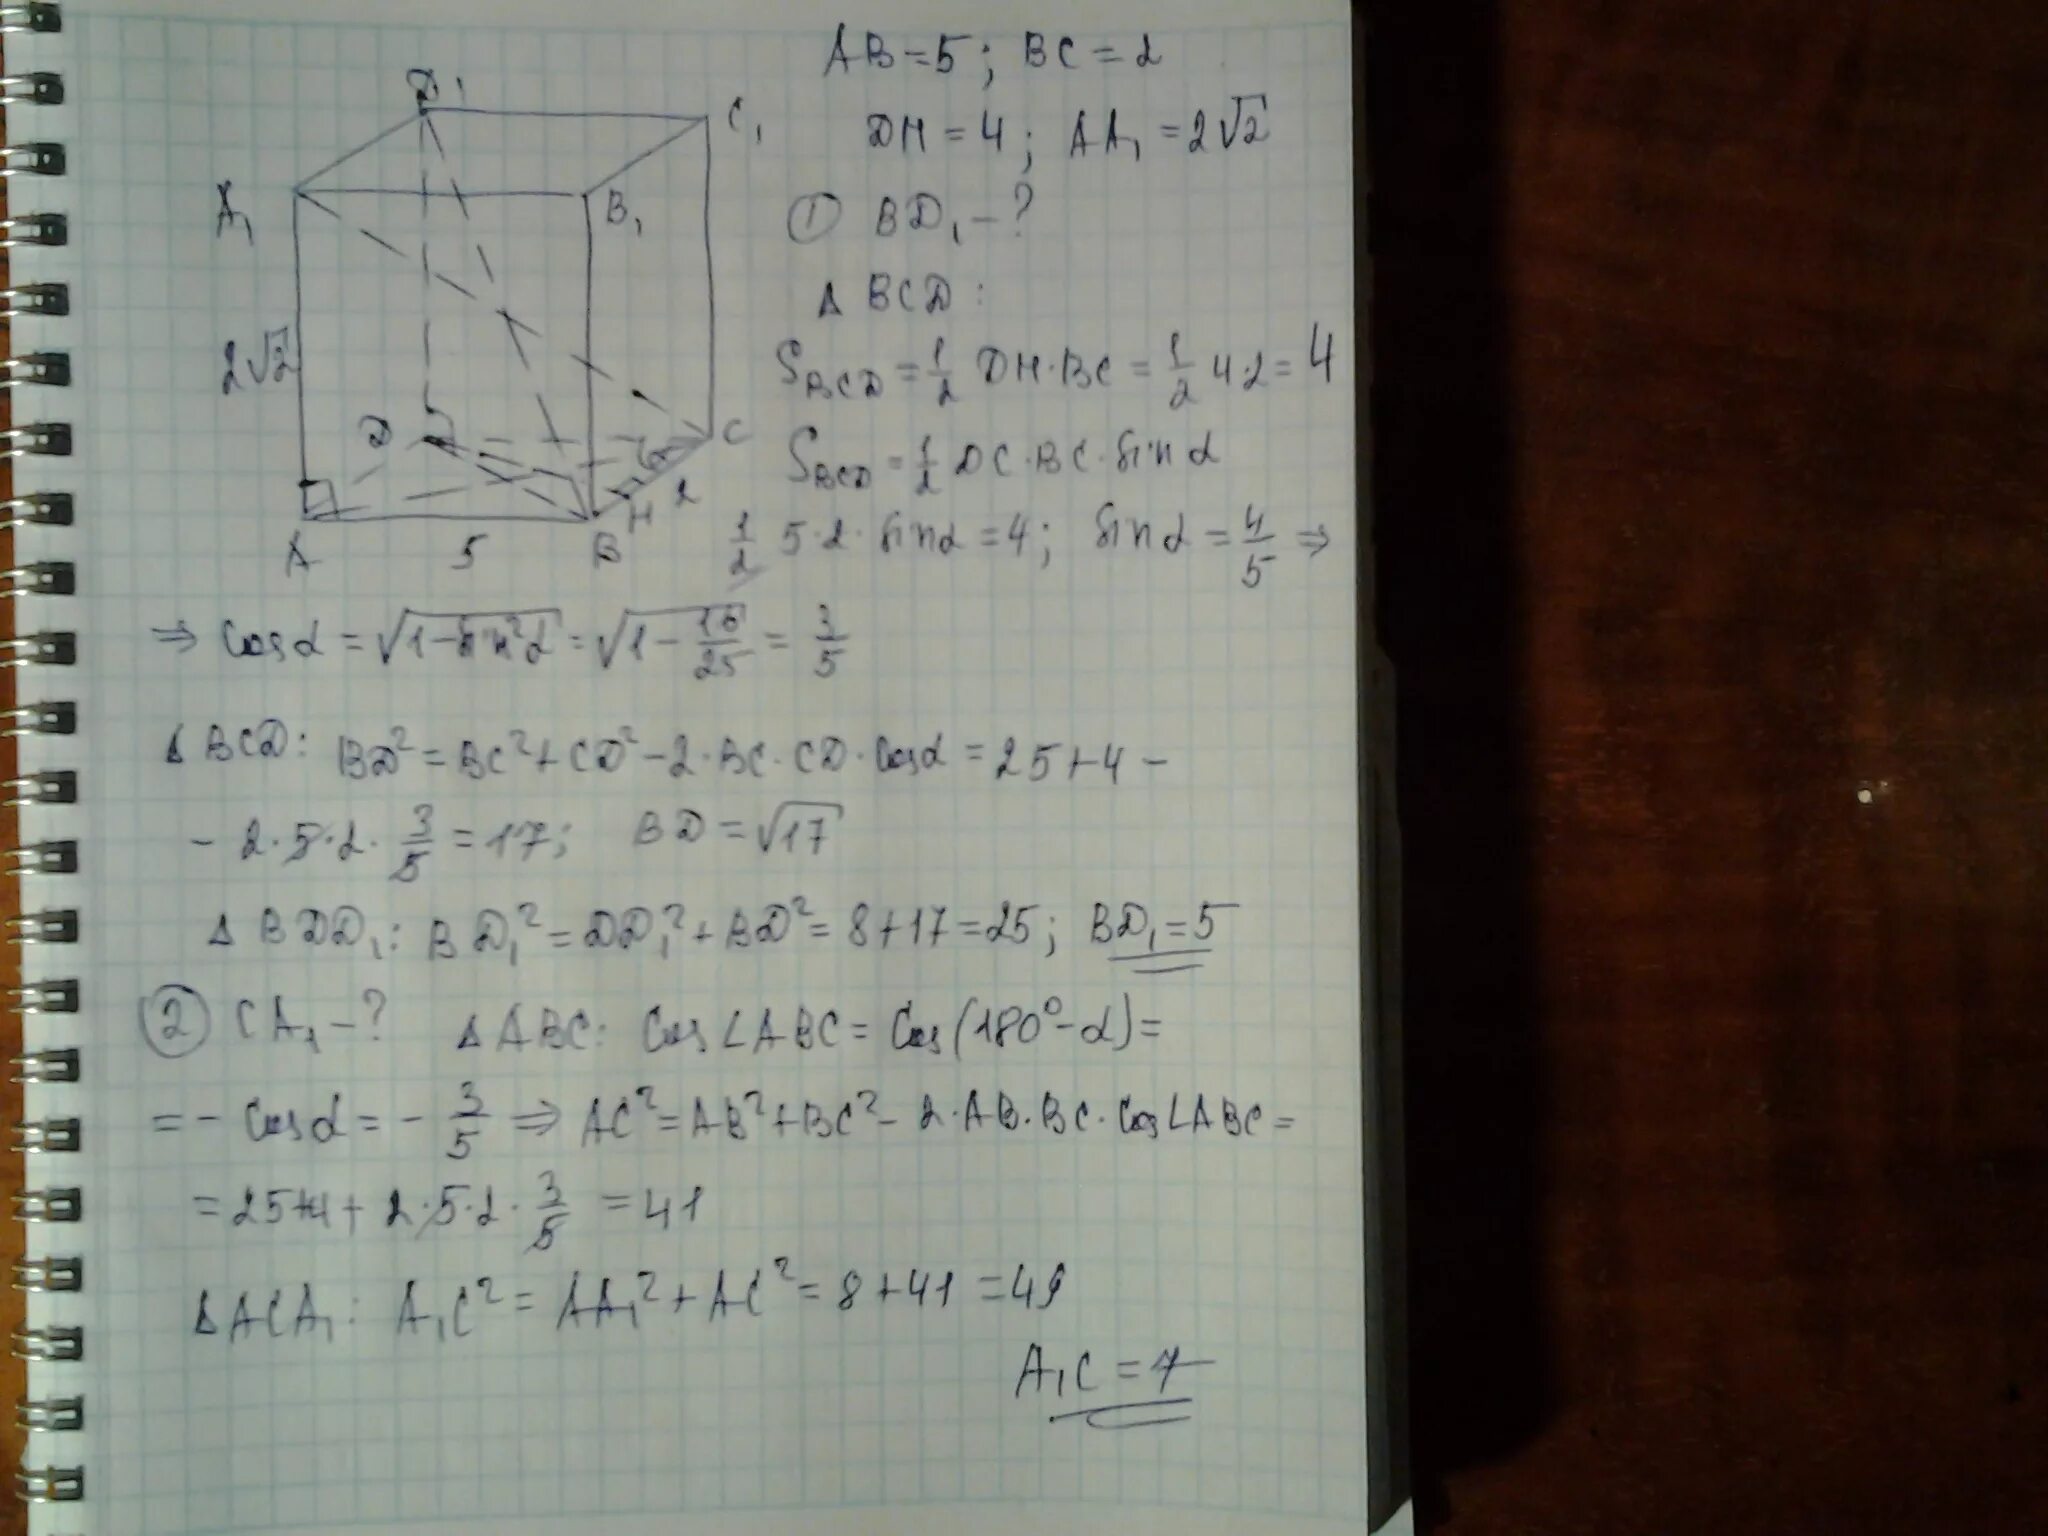 AB = 5; BC = 2
DH = 4; AA₁ = 2√2
① BD₁ – ?
Δ BCD:
S_BCD = 1/2 DH · BC = 1/2 4 · 2 = 4
S_BCD = 1/2 DC · BC · sin α
1/2 5 · 2 · sin α = 4; sin α = 4/5 ⇒
⇒ cos α = √(1 – sin² α) = √(1 – 16/25) = 3/5
Δ BCD: BD² = BC² + CD² – 2 · BC · CD · cos α = 25 + 4 –
– 2 · 5 · 2 · 3/5 = 17; BD = √17
Δ BDD₁: BD₁² = DD₁² + BD² = 8 + 17 = 25; BD₁ = 5
② CA₁ – ? Δ ABC: cos ∠ABC = cos (180° – α) =
= – cos α = – 3/5 ⇒ AC² = AB² + BC² – 2 · AB · BC · cos ∠ABC =
= 25 + 4 + 2 · 5 · 2 · 3/5 = 41
Δ ACA₁: A₁C² = AA₁² + AC² = 8 + 41 = 49
A₁C = 7
D₁
C₁
A₁
B₁
2√2
D
C
α
2
H
A
5
B